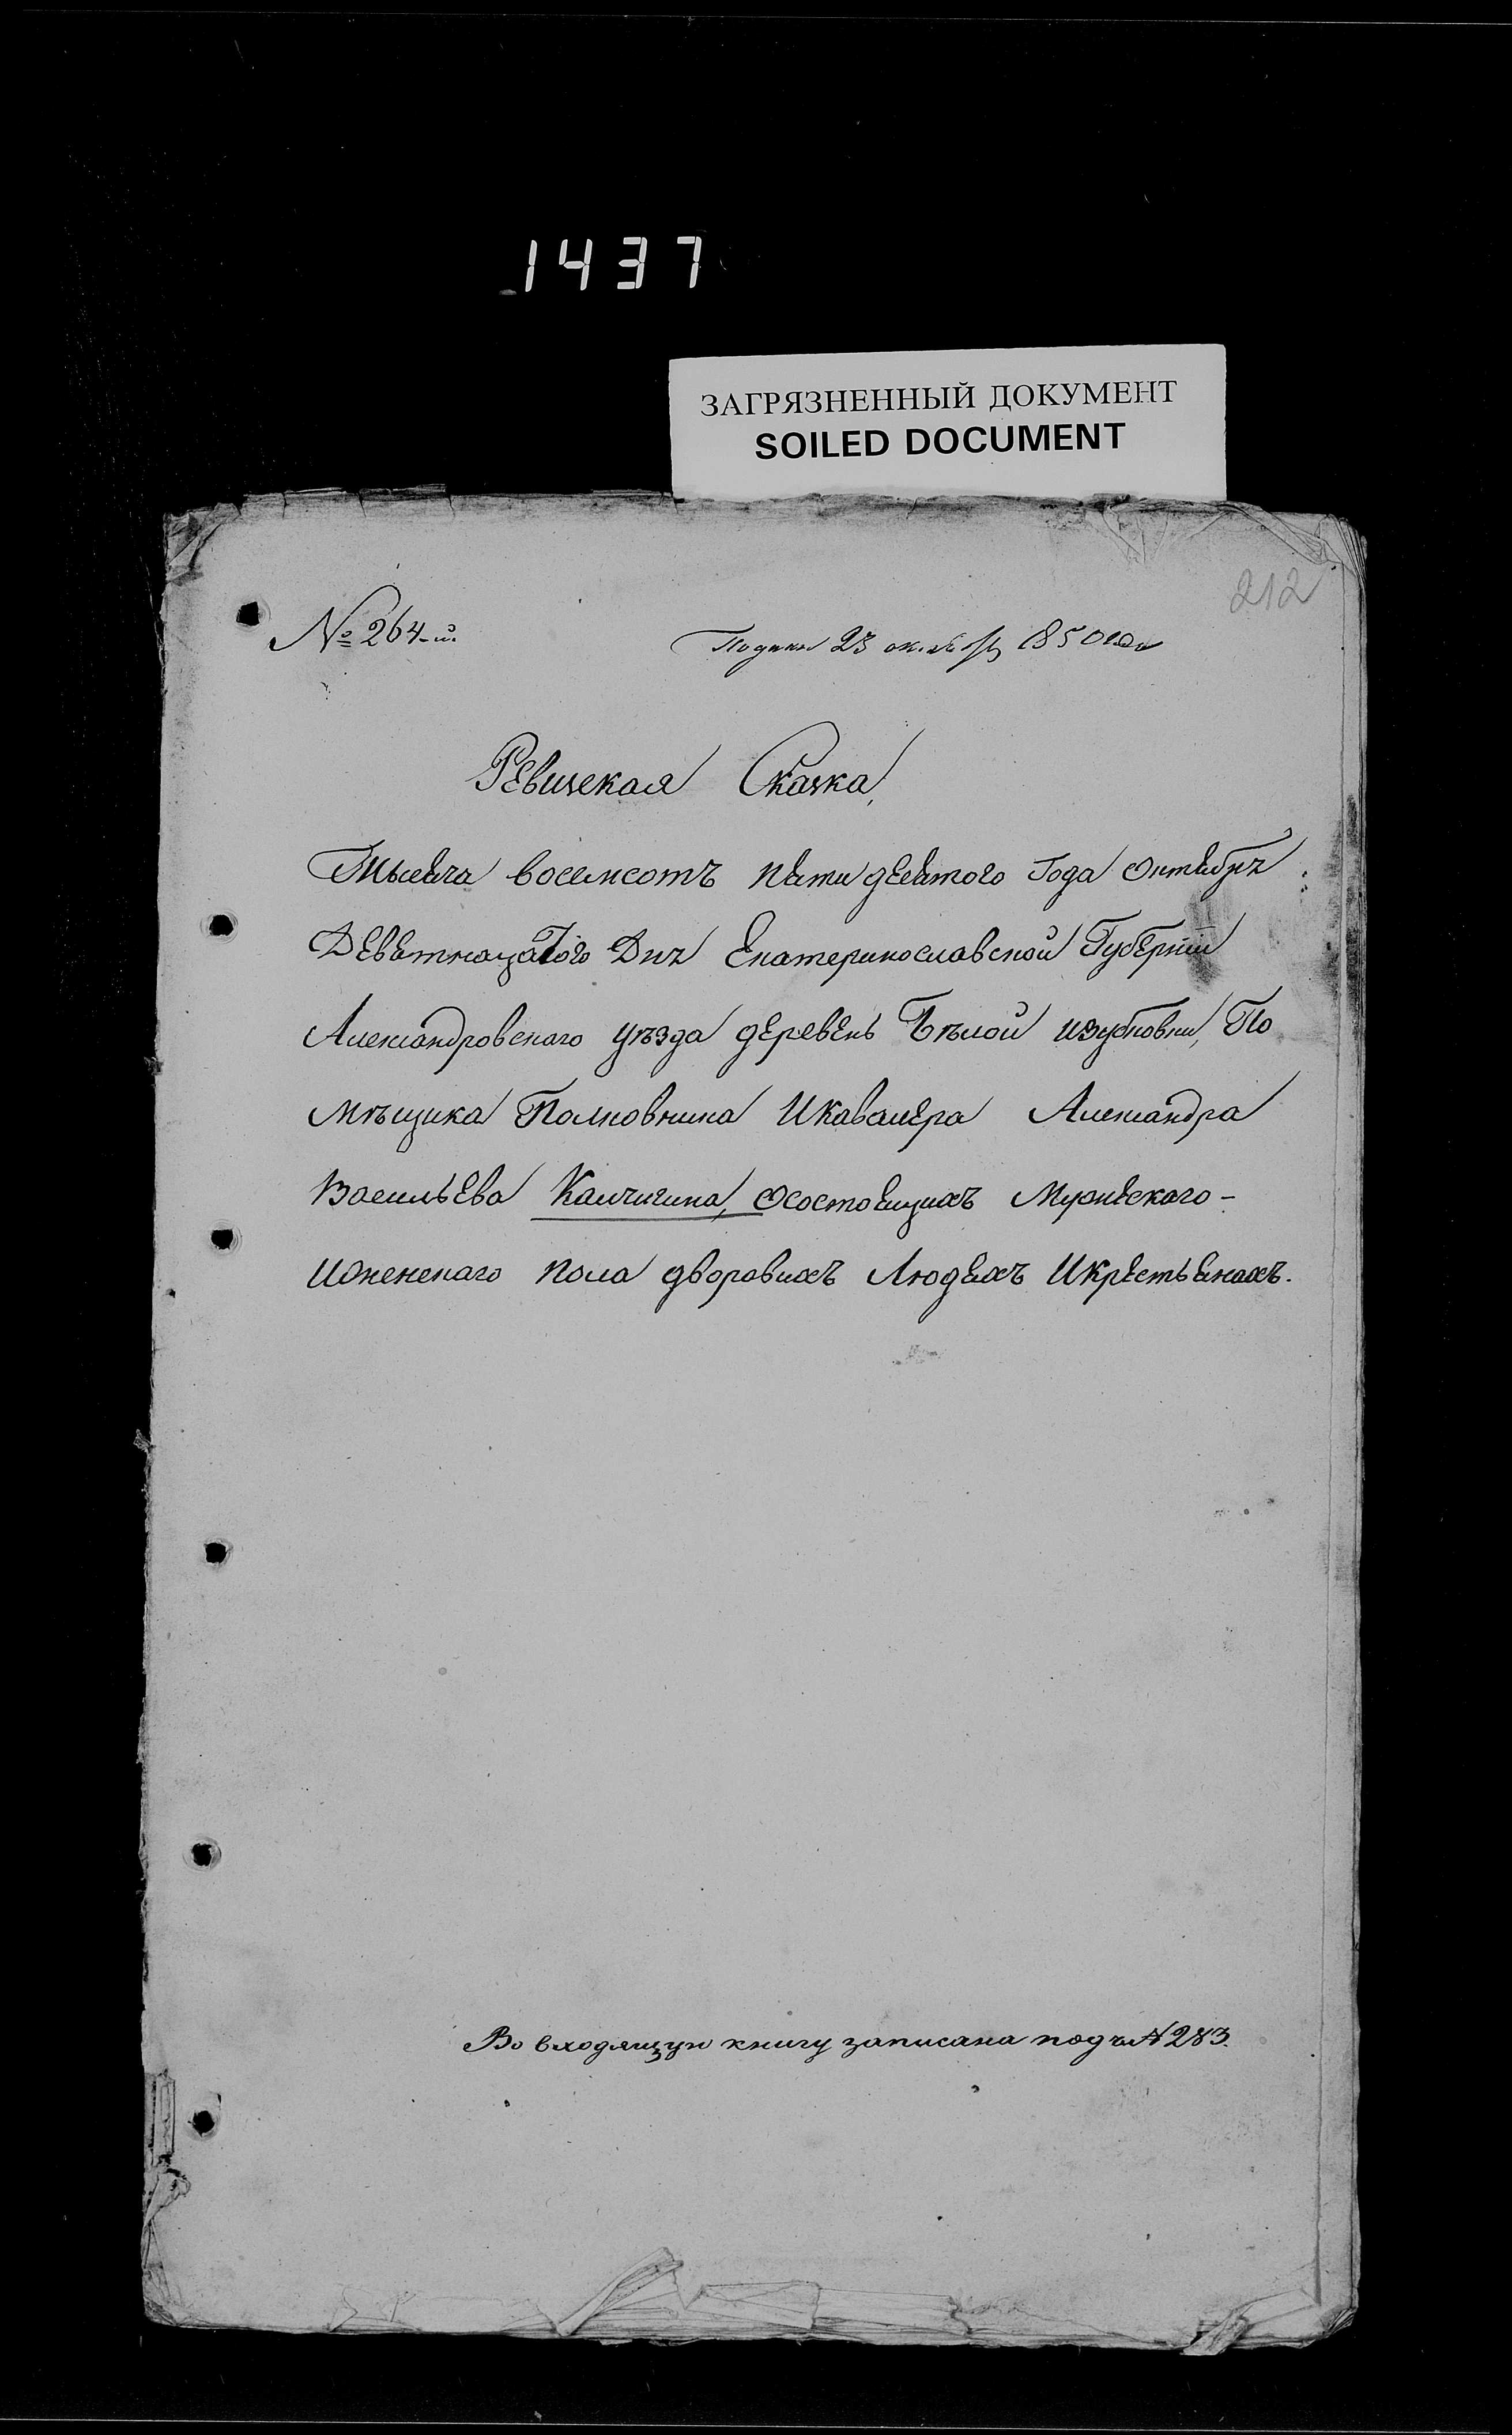 1437
ЗАГРЯЗНЕННЫЙ ДОКУМЕНТ
SOILED DOCUMENT
212
№ 264-й.
Подана 23 октября 1850 года
Ревизская Сказка,
Тысеча восемсотъ пятидесятого Года Октября
Деветнацатого Дня Екатеринославской Губерніи
Александровскаго уѣзда деревень Бѣлой изубковки, По
мѣщика Полковника Икавалера Александра
Васильева Калчигина, осостоящихъ Мужескаго-
Иженскаго пола дворовихъ Людяхъ Икрестьянахъ.
Во входящую книгу записана подъ № 283.